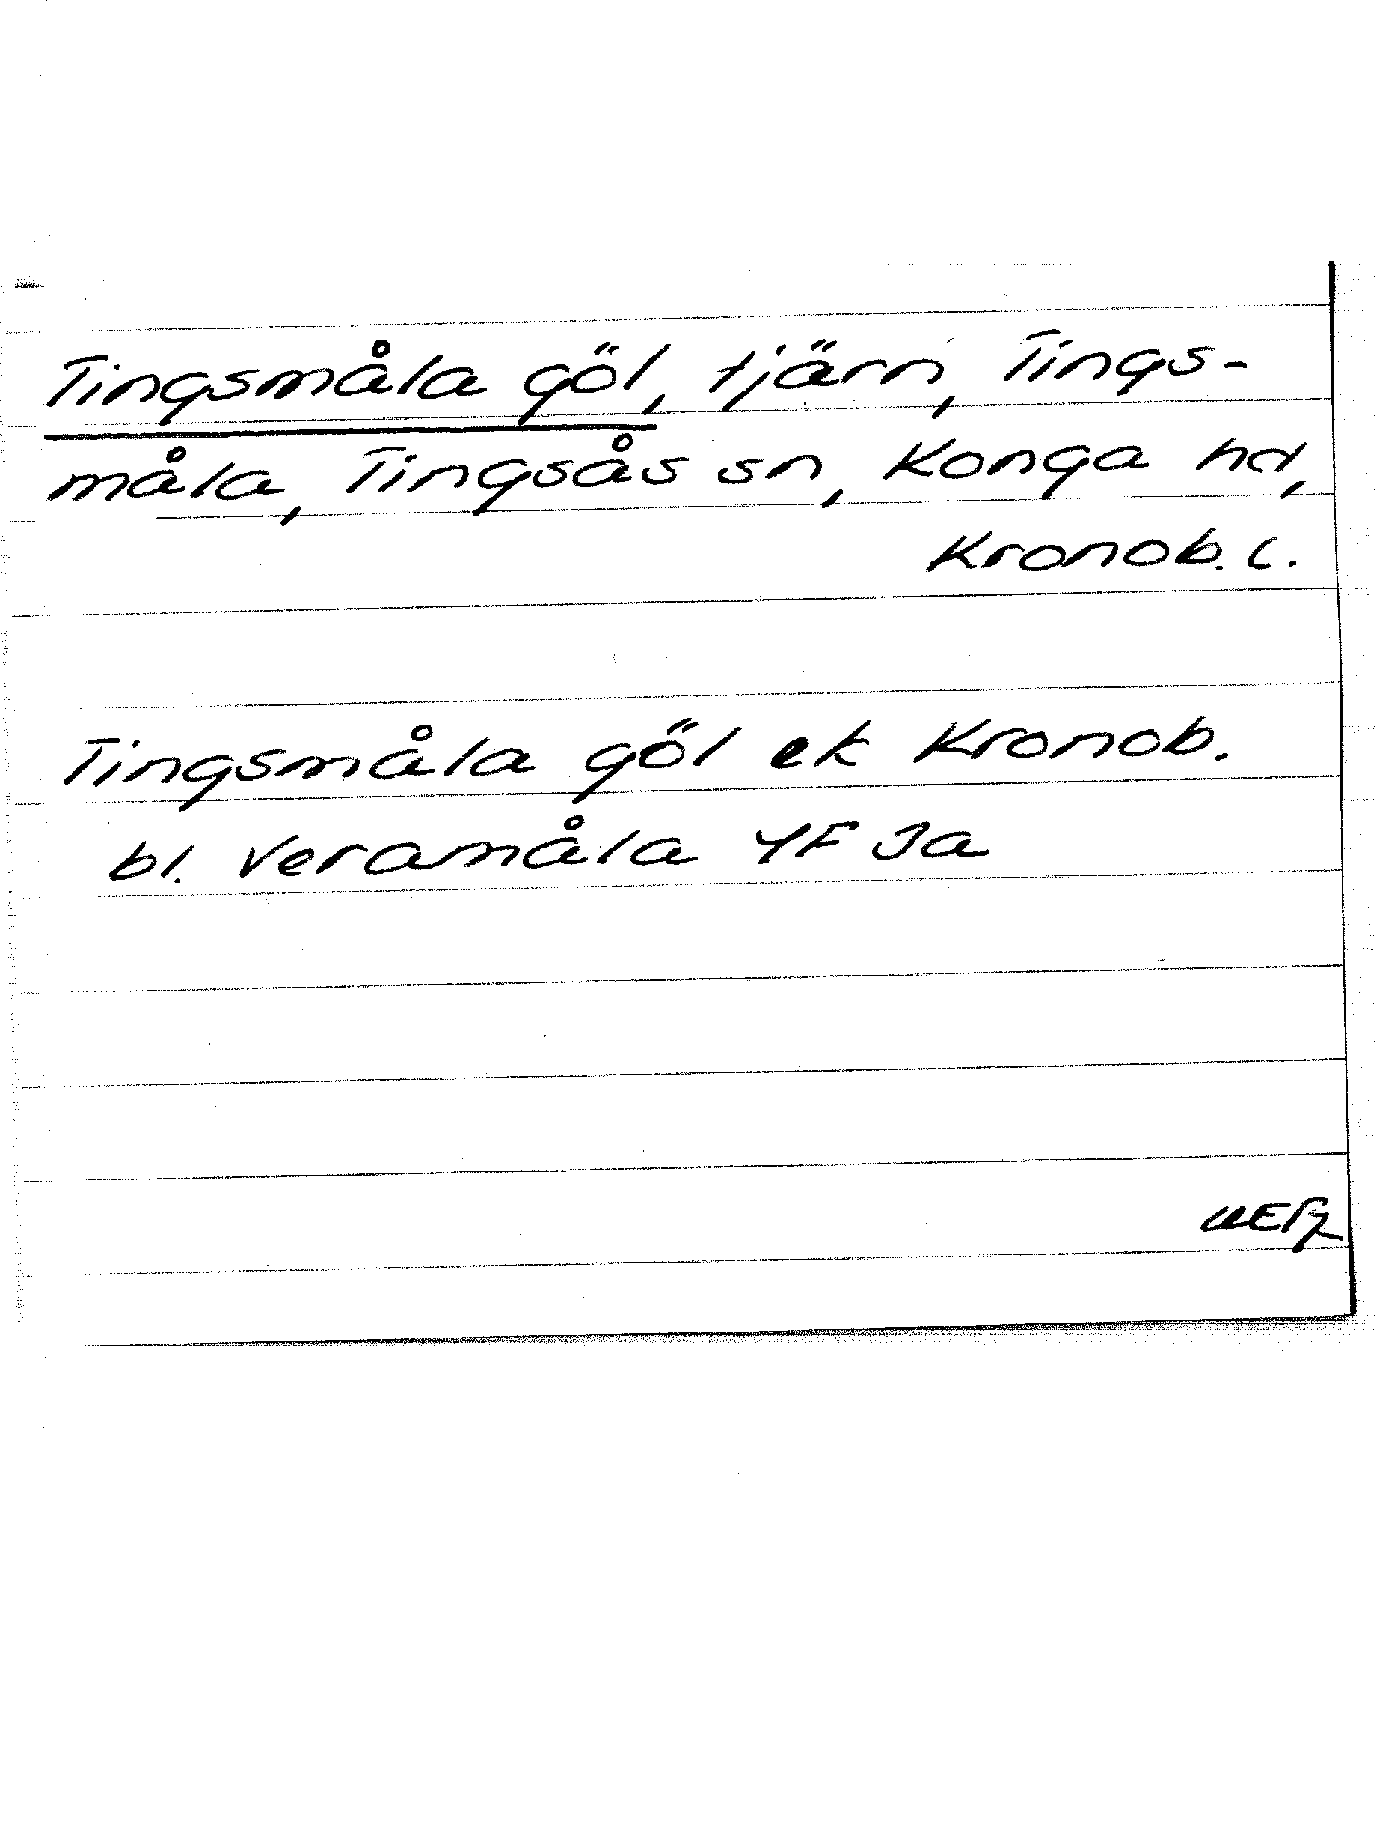 Tingsmåla göl, tjärn, Tings-
måla, Tingsås sn, Konga hd,
Kronob. l.
Tingsmåla göl ek Kronob.
bl. Veramåla 4F 3a